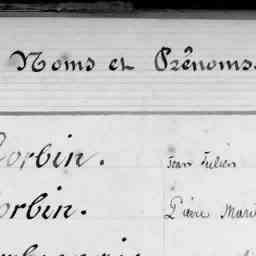 Noms et Prénoms.
Corbin. Jean Julien
Corbin. Pierre Marie